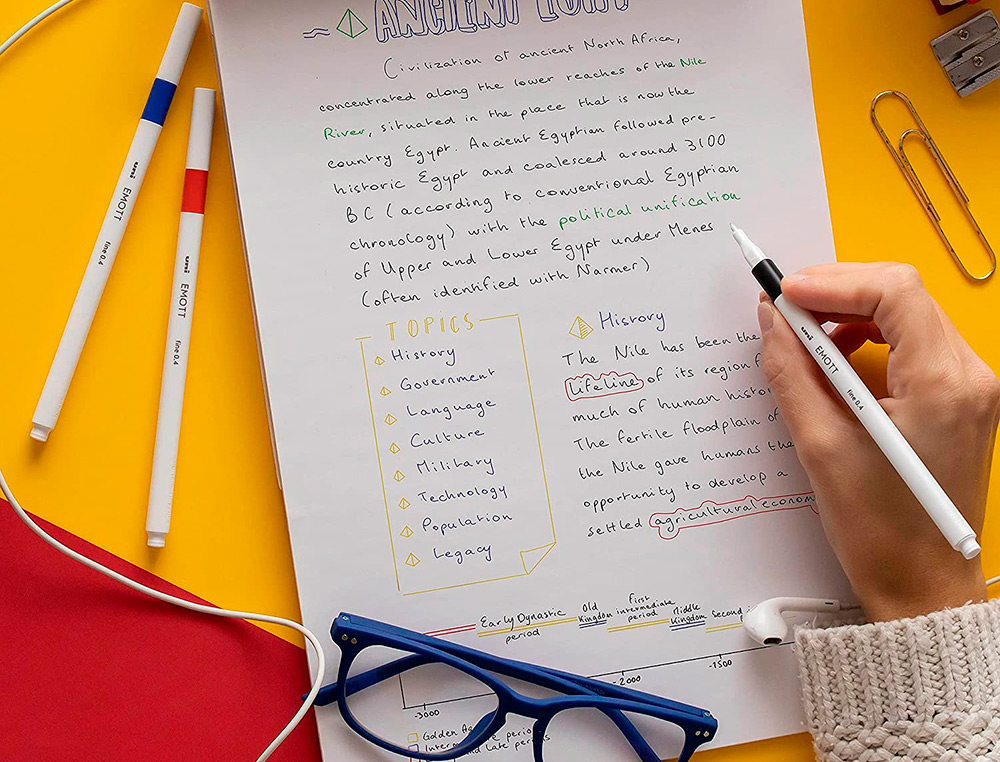 ANCIENT
Civilization of ancient North Africa,
concentrated along the lower reaches of the Nile
River, situated in the place that is now the
country Egypt. Ancient Egyptian followed pre-
historic Egypt and coalesced around 3100
BC (according to conventional Egyptian
chronology) with the political unification
of Upper and Lower Egypt under Menes
(often identified with Narmer)
TOPICS
History
Government
Language
Culture
Military
Technology
Population
Legacy
History
The Nile has been the
lifeline of its region
much of human
The fertile floodplain of
the Nile gave humans
opportunity to develop a
settled agricultural
Early Dynastic
period
Old
Kingdom
First
intermediate
period
Middle
Kingdom
Second
-3000
-2000
-1500
Golden
late
uni EMOTT fine 0.4
uni EMOTT fine 0.4
uni EMOTT fine 0.4